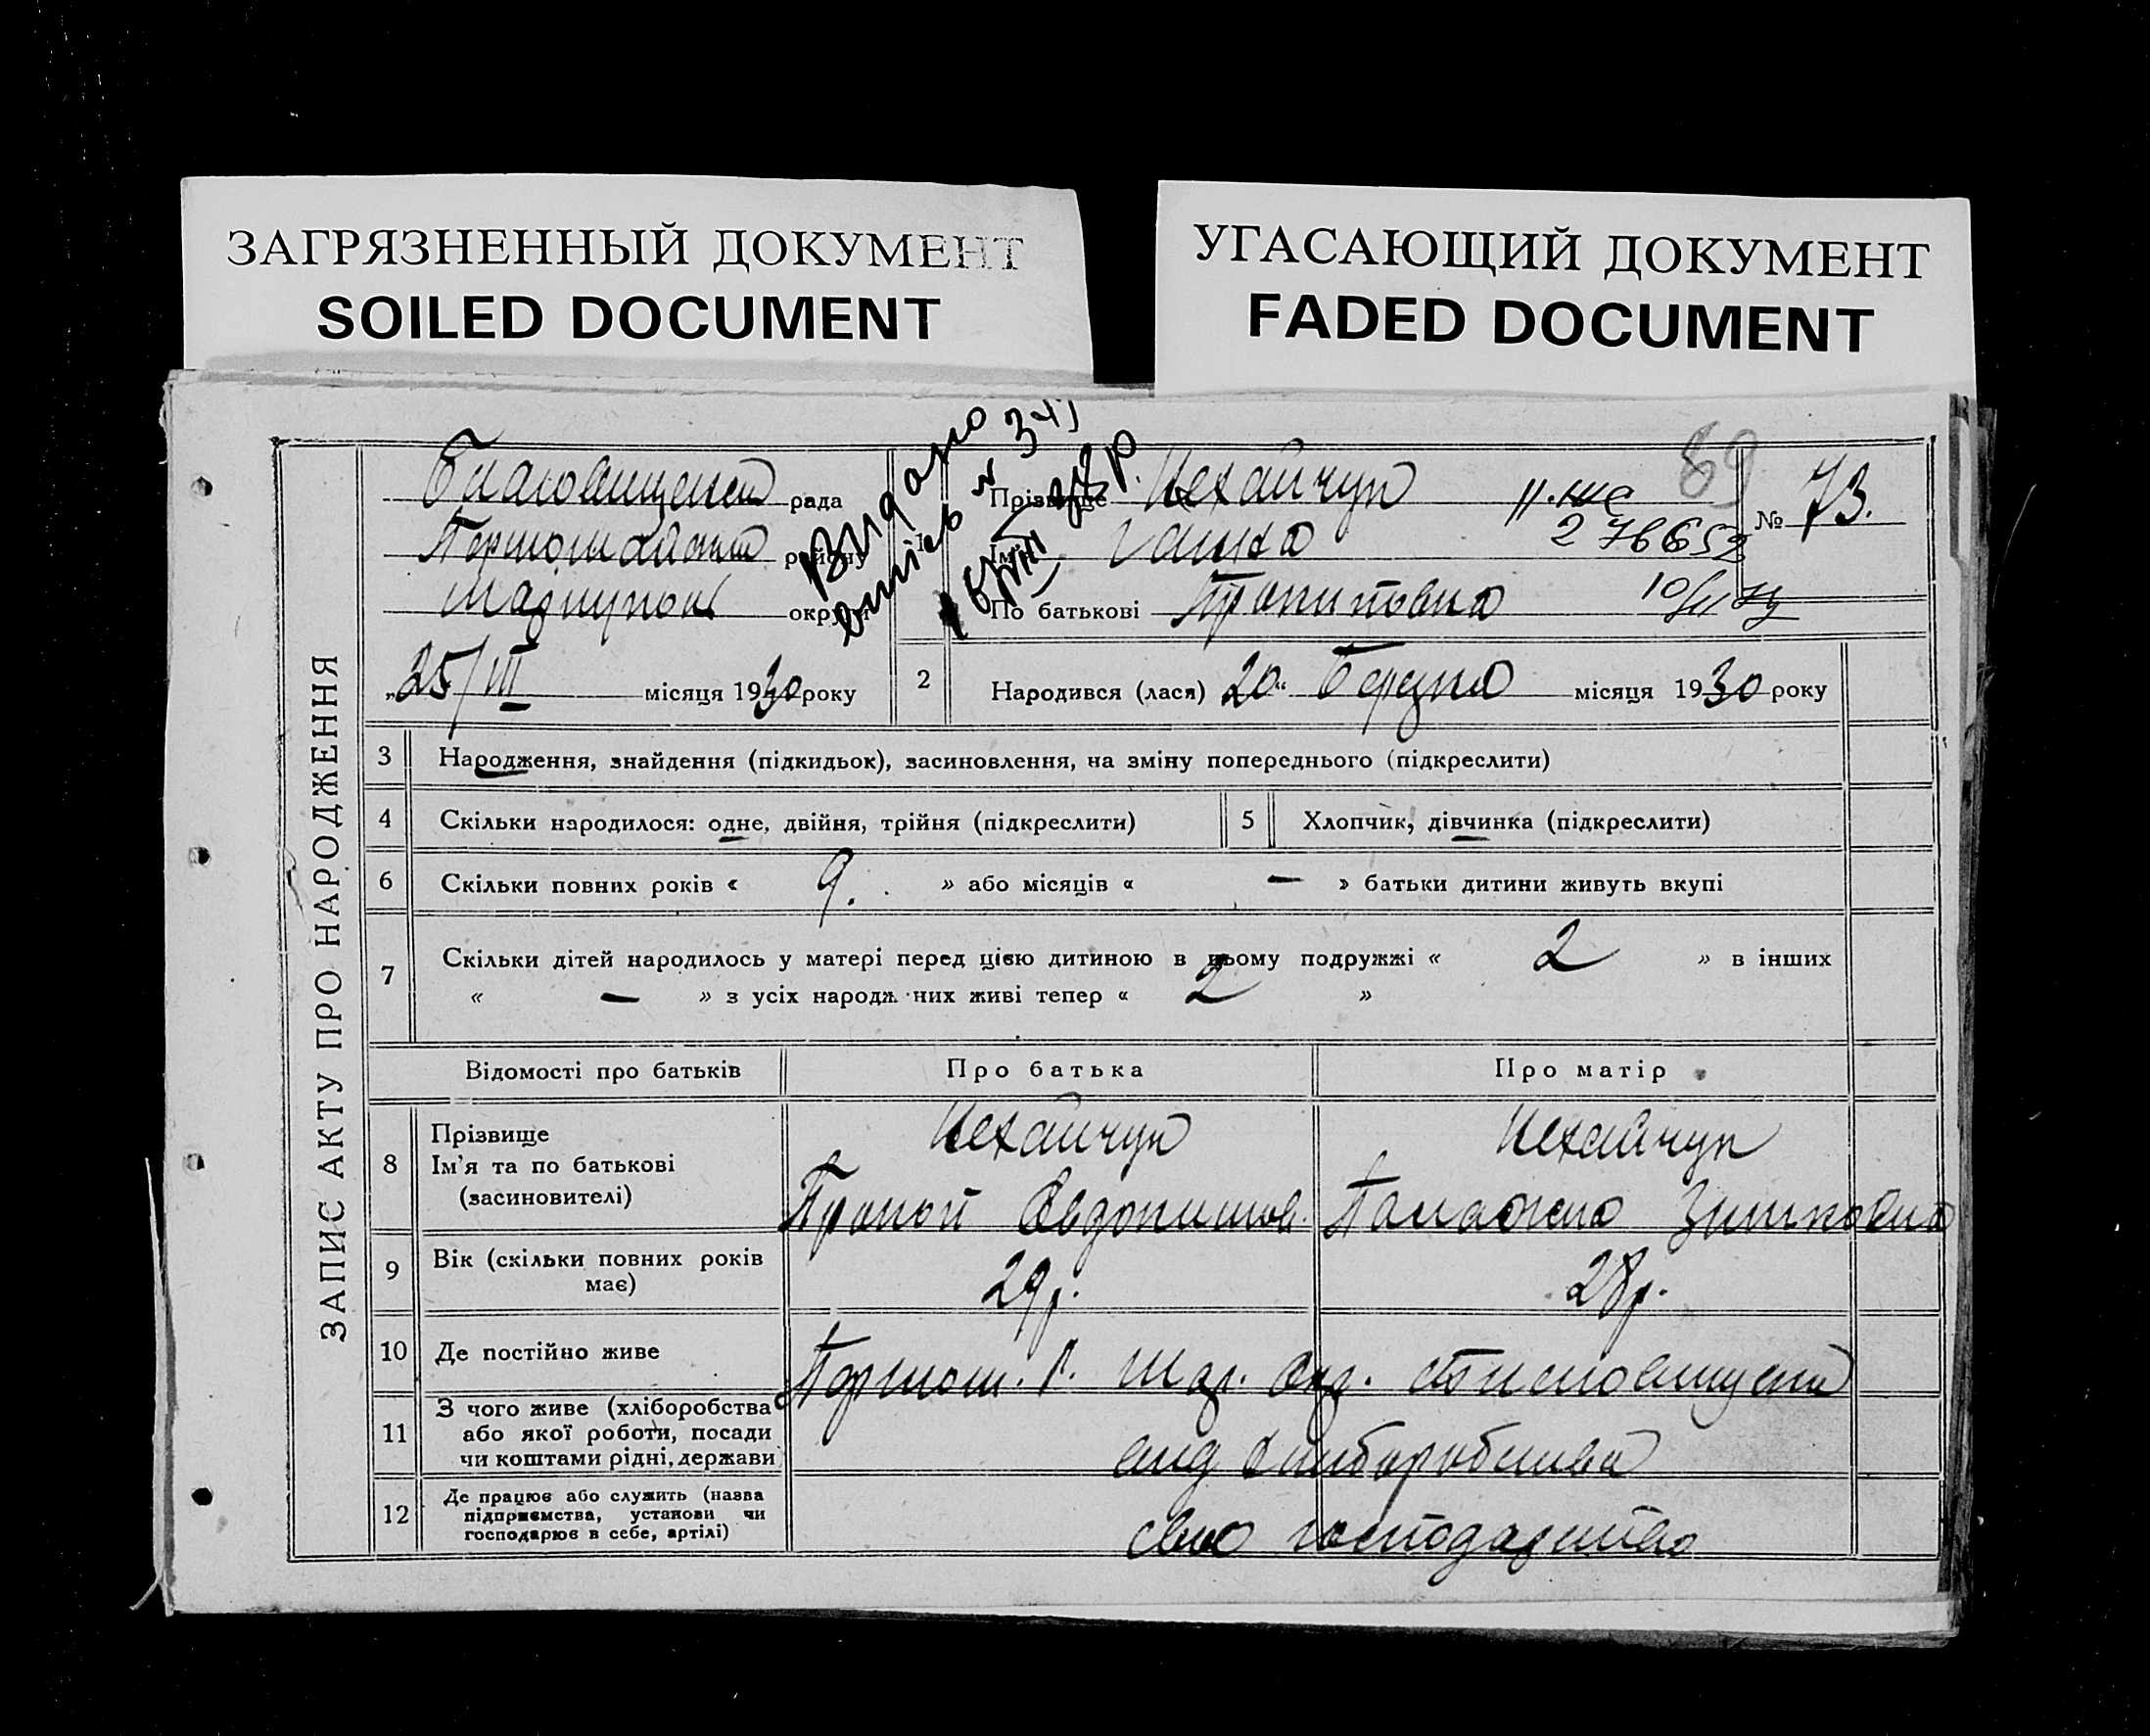 ЗАГРЯЗНЕННЫЙ ДОКУМЕНТ
SOILED DOCUMENT
УГАСАЮЩИЙ ДОКУМЕНТ
FADED DOCUMENT
ЗАПИС АКТУ ПРО НАРОДЖЕННЯ
рада
району
округи
Видано
№ 341
„25/III місяця 1930 року
1 Прізвище Нехайчук
Ім'я Ганна
По батькові Прокиповна
89
II-ша
276652
№ 73.
2 Народився (лася) 20“ Березня місяця 1930 року
3 Народження, знайдення (підкидьок), засиновлення, на зміну попереднього (підкреслити)
4 Скільки народилося: одне, двійня, трійня (підкреслити)
5 Хлопчик, дівчинка (підкреслити)
6 Скільки повних років « 9. » або місяців « — » батьки дитини живуть вкупі
7 Скільки дітей народилось у матері перед цією дитиною в цьому подружжі « 2 » в інших
« — » з усіх народж них живі тепер « 2 »
Відомості про батьків
Про батька
Про матір
8 Прізвище
Ім'я та по батькові
(засиновителі)
Нехайчук
Нехайчук
9 Вік (скільки повних років
має)
29 р.
28 р.
10 Де постійно живе
11 З чого живе (хліборобства
або якої роботи, посади
чи коштами рідні, держави
від хліборобства
12 Де працює або служить (назва
підприємства, установи чи
господарює в себе, артілі)
своє господарство